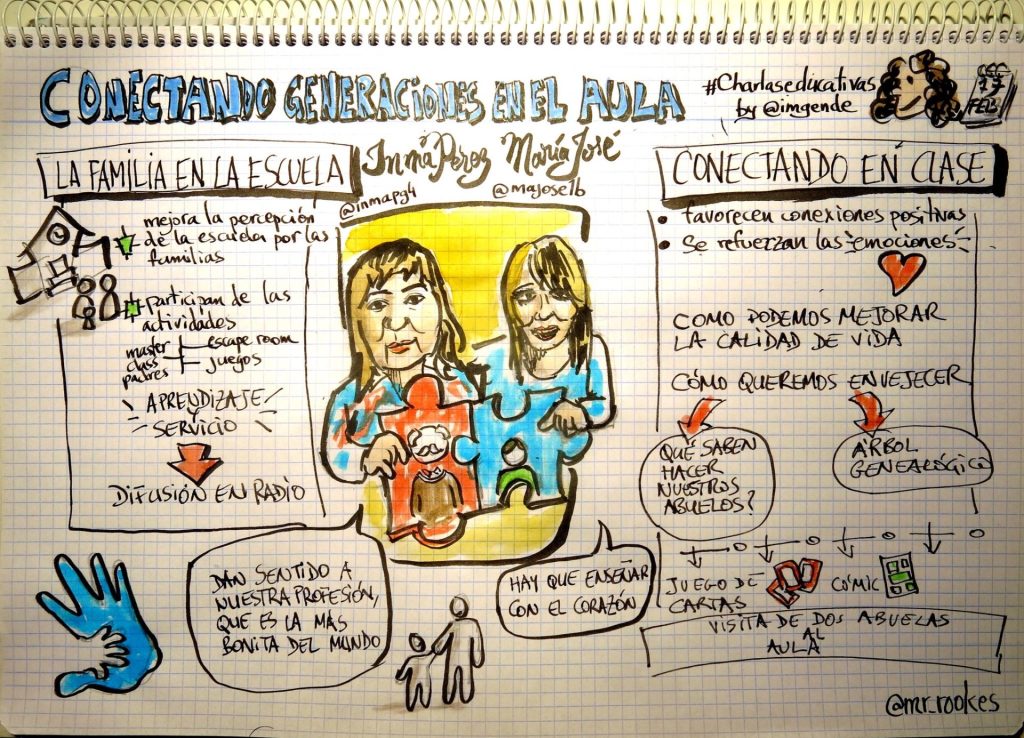 CONECTANDO GENERACIONES EN EL AULA
#Charlaseducativas
by @imgende
17
FEB
Inma Pérez María José
@inmapg4
@majose1b
LA FAMILIA EN LA ESCUELA
mejora la percepción
de la escuela por las
familias
participan de las
actividades
master
class
padres
escape room
juegos
APRENDIZAJE
Y
SERVICIO
DIFUSIÓN EN RADIO
DAN SENTIDO A
NUESTRA PROFESIÓN,
QUE ES LA MÁS
BONITA DEL MUNDO
HAY QUE ENSEÑAR
CON EL CORAZÓN
CONECTANDO EN CLASE
• favorecen conexiones positivas
• Se refuerzan las emociones
COMO PODEMOS MEJORAR
LA CALIDAD DE VIDA
CÓMO QUEREMOS ENVEJECER
QUÉ SABEN
HACER
NUESTROS
ABUELOS?
ÁRBOL
GENEALÓGICO
JUEGO DE
CARTAS
CÓMIC
VISITA DE DOS ABUELAS
AL
AULA
@mr_rookes